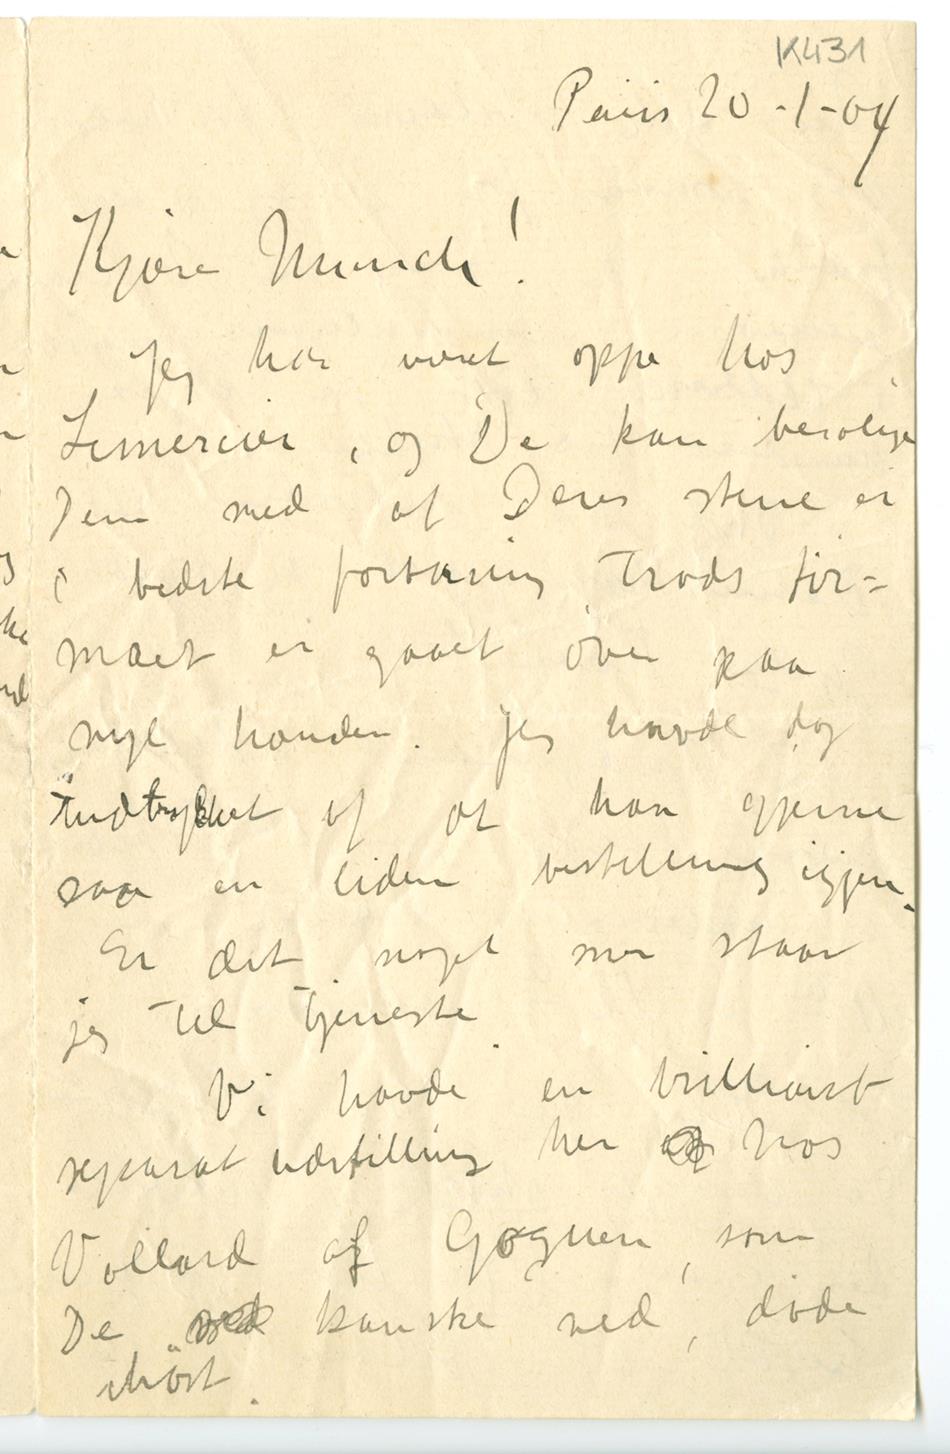 K431
Paris 20-1-04
Kjære Munch!
Jeg har været oppe hos
Lemercier, og De kan berolige
Dem med at Deres stene er
i bedste forvaring trods fir=
maet er gaaet over paa
nye hænder. Jeg havde dog
indtrykket af at han gjerne
saa en liden bestilling igjen.
Er det noget mer staar
jeg til tjeneste.
Vi havde en brilliant
separat udstilling her hos
Vollard af Goguen, som
De kanske ved, døde
ihøst.